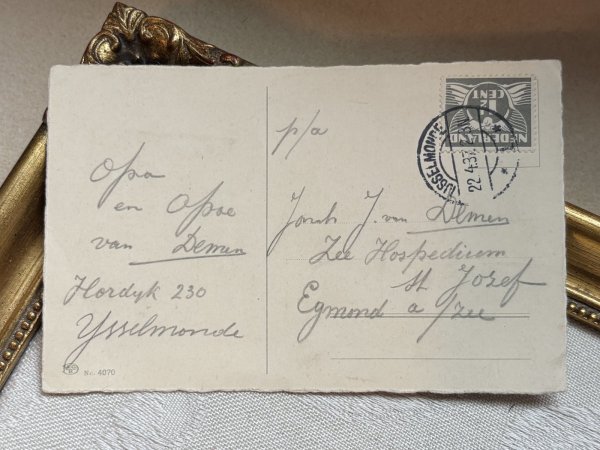 Opa
en Opoe
van Demen
Hordyk 230
IJsselmonde
No. 4070
p/a
Jonh J. van Demen
Zee Hospedieum
St Jozef
Egmond a/zee
NEDERLAND
1½
CENT
IJSSELMONDE
22.4.37